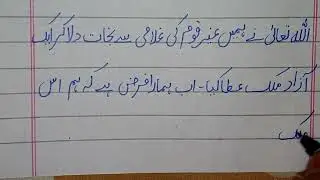 اللہ تعالیٰ نے ہمیں غیر قوم کی غلامی سے نجات دلا کر ایک
آزاد ملک عطا کیا - اب ہمارا فرض ہے کہ ہم اس
ملک